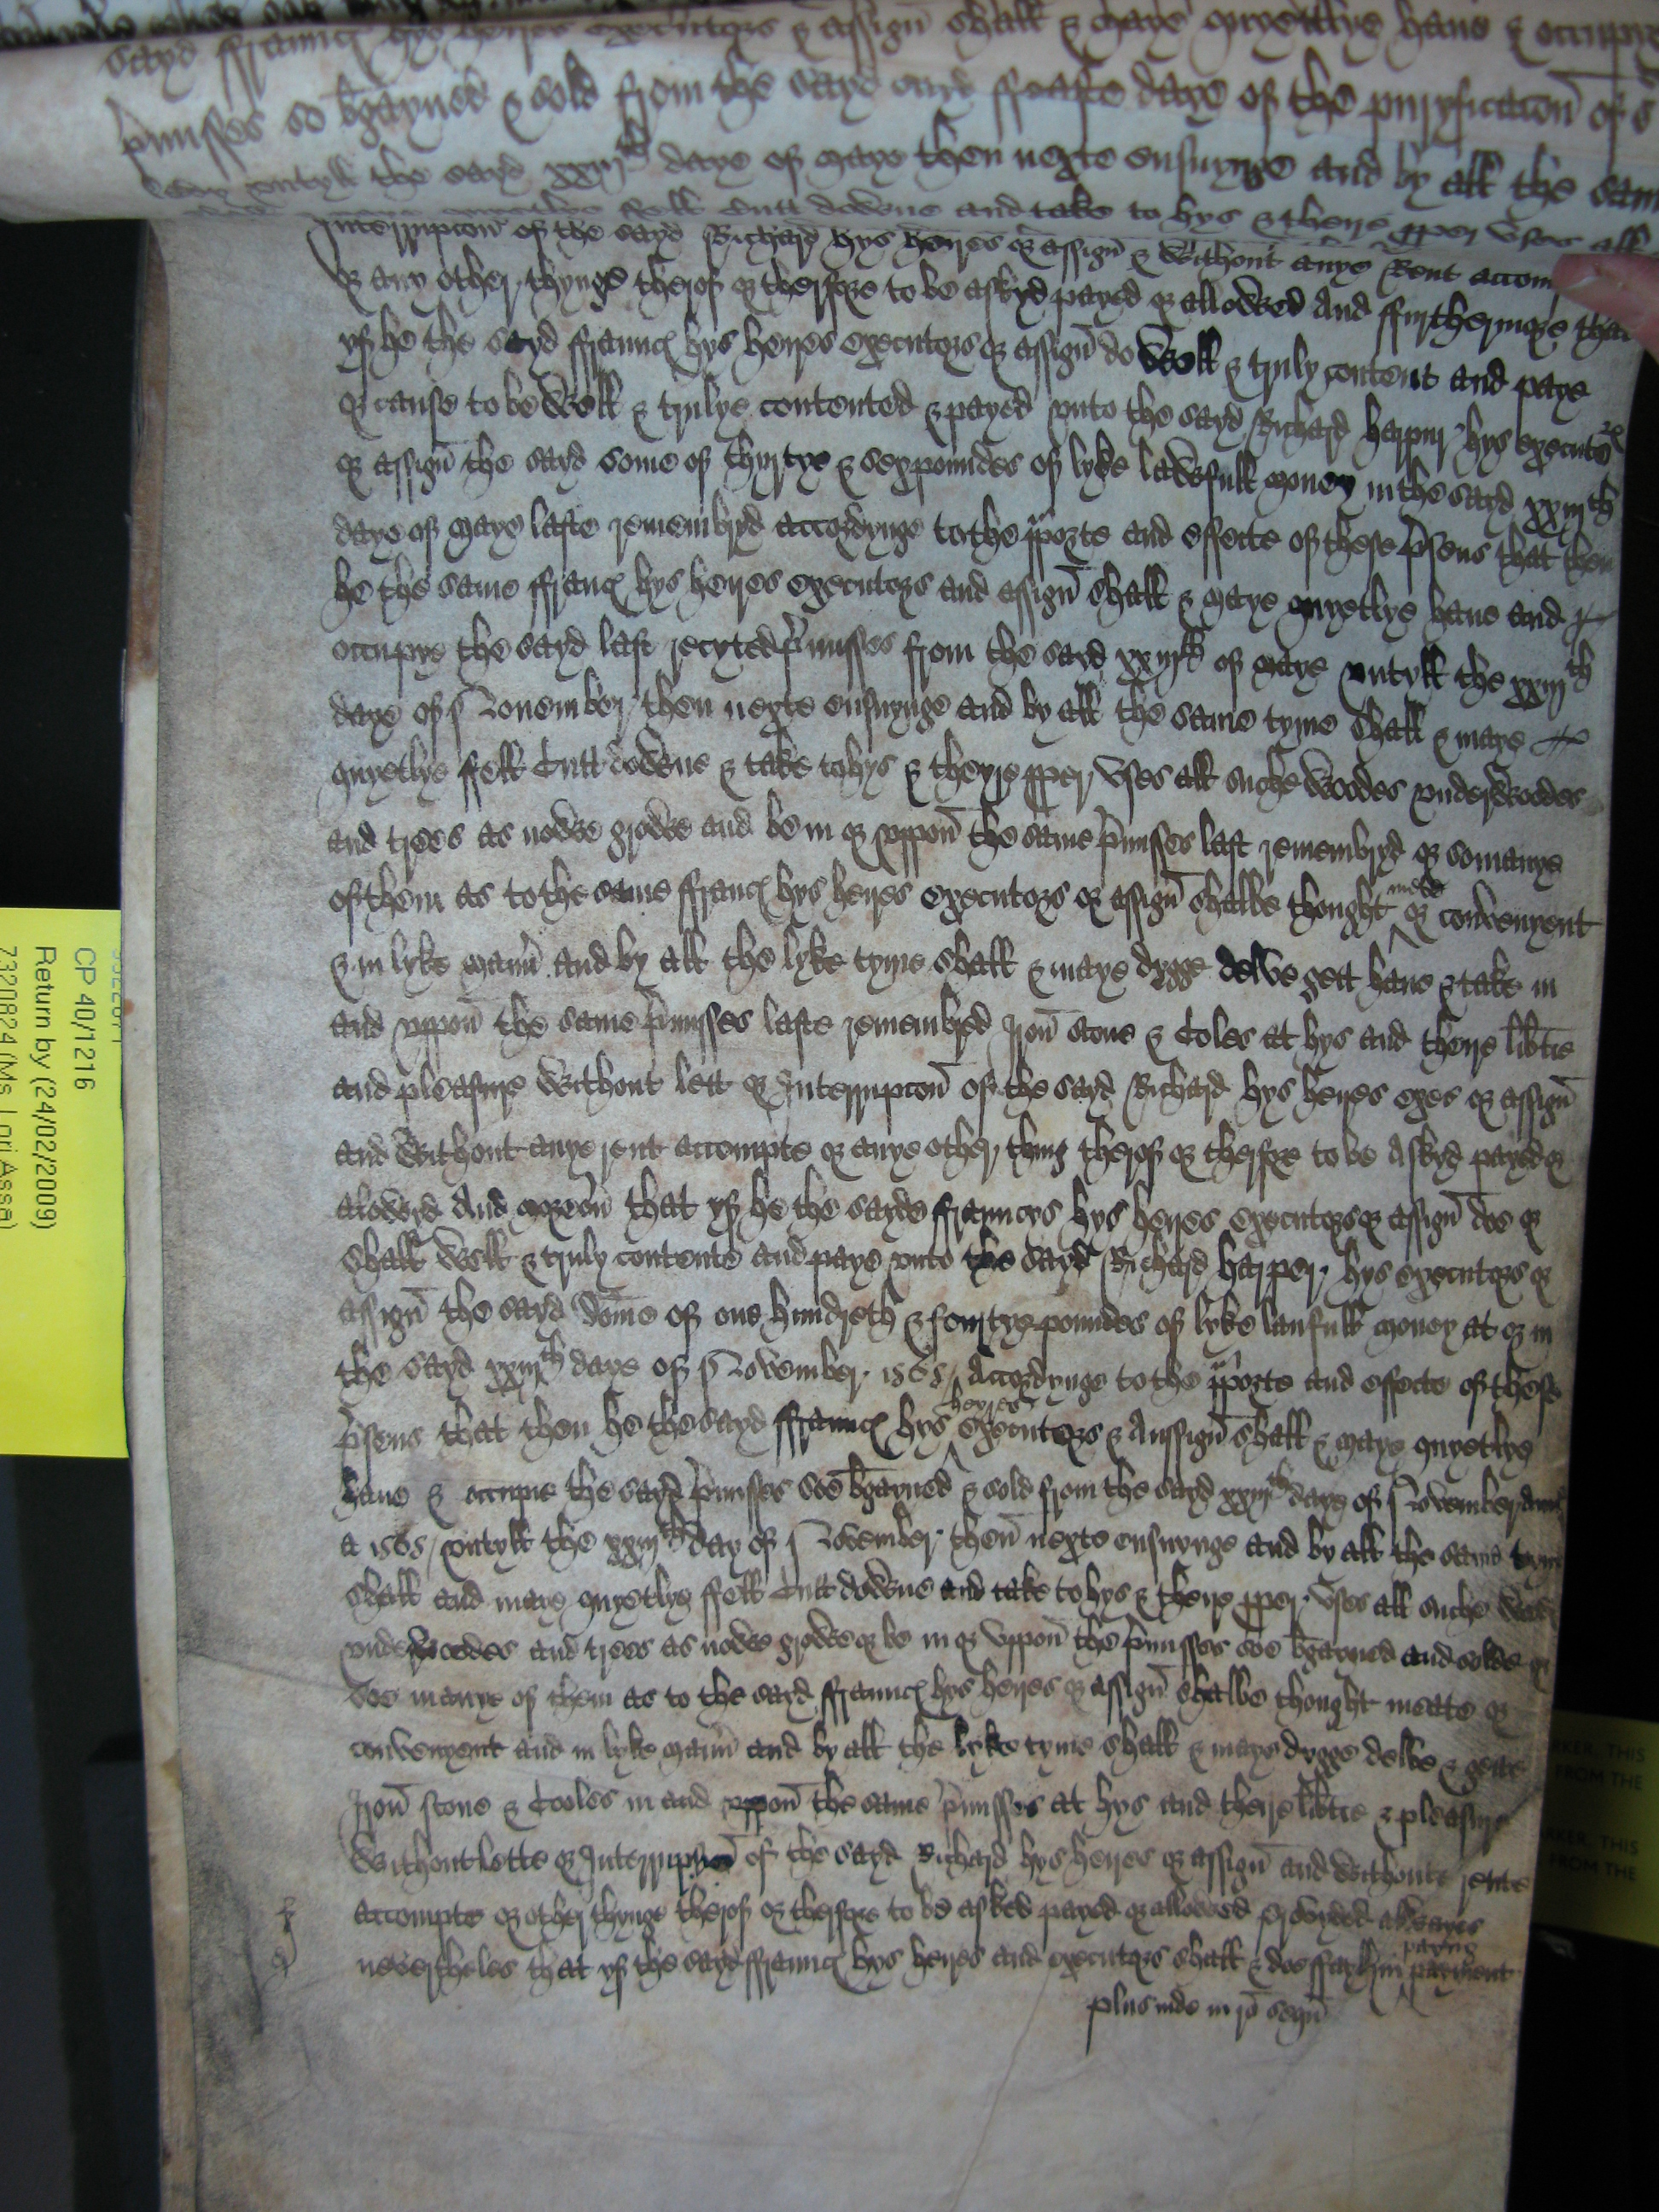 sayd ffraunc hys heyres executors & assign shall & maye quyetlye have & occupye
pmisses so bgayned & sold from the sayd ffeaste daye of the puryficacon of
Lady untyll the sayd xxiijth daye of Maye then nexte ensuynge and by all the sam
fell Cutt downe and take to hys & theire pper uses all
Interrupcon of the sayd Richard hys heyres or assign & without anye Rent accom
or any other thynge therof or therfore to be askyd payed or allowed And ffurthermore that
yf he the sayd ffraunc hys heyres executors or assign do well & truly content and paye
or cause to be well & trulye contented & payed unto the sayd Richard harpur hys executors
or assign the sayd some of thyrtye & sex poundes of lyke lawfull money in the sayd xxiijth
daye of Maye laste remembryd accordynge to the pporte and effecte of these psens that then
he the same ffraunc hys heyres executors and assign shall & maye quyetlye have and
occupye the sayd last recyted pmisses from the sayd xxiijth of Maye untyll the xxiijth
daye of November then nexte ensuynge and by all the same tyme shall & maye
quyetlye ffell Cutt downe & take to hys & theyre pper uses all suche woodes underwoodes
and trees as nowe growe and be in or uppon the same pmisses last remembryd or so manye
of them as to the same ffraunc hys heyres executors or assign shalbe thought mete or convenyent
& in lyke mann and by all the lyke tyme shall & maye dygge delve gett have & take in
and uppon the same pmisses laste remembred Iron stone & Coles at hys and theire libtie
and pleasure without lett or Interrupcon of the sayd Richard hys heyres exes or assign
and without anye rent accompte or anye other thing therof or therfore to be Askyd payed or
alowyd And moreov that yf he the sayde ffrauncys hys heyres executors or assign doe or
shall well & truly contente and paye unto the sayd Richard harper hys executors or
assign the sayd some of one hundreth & fourtye poundes of lyke laufull money at or in
the sayd xxiijth daye of November 1565 Accordynge to the pporte and effecte of these
psens that then he the sayd ffraunc hys heyres executors & Assign shall & maye quyetlye
have & occupie the sayd pmisses soe bgayned & sold from the sayd xxiijth daye of November
a 1565 untyll the xxiijth day of November then nexte ensuynge and by all the same tyme
shall and maye quyetlye ffell Cutt downe and take to hys & theire pper uses all suche
underwoodes and trees as nowe growe or be in or uppon the pmisses soe bgayned and solde or
soe manye of them as to the sayd ffraunc hys heyres or assign shalbe thought meate or
convenyent and in lyke mann and by all the lyke tyme shall & maye dygge delve & gette
Iron stone & Cooles in and uppon the same pmisses at hys and theire libtie & pleasure
without lette or Interrupcon of the sayd Richard hys heyres or assign and withoute rente
accompte or other thynge therof or therfore to be asked payed or allowed provyded allwayes
neverthelas that yf the sayd ffraunc hys heyres and executors shall & doe ffayle in payment
plus inde in ro sequ
CP 40/1216
Return by (24/02/2009)
7320824 (Ms Lori Assa)